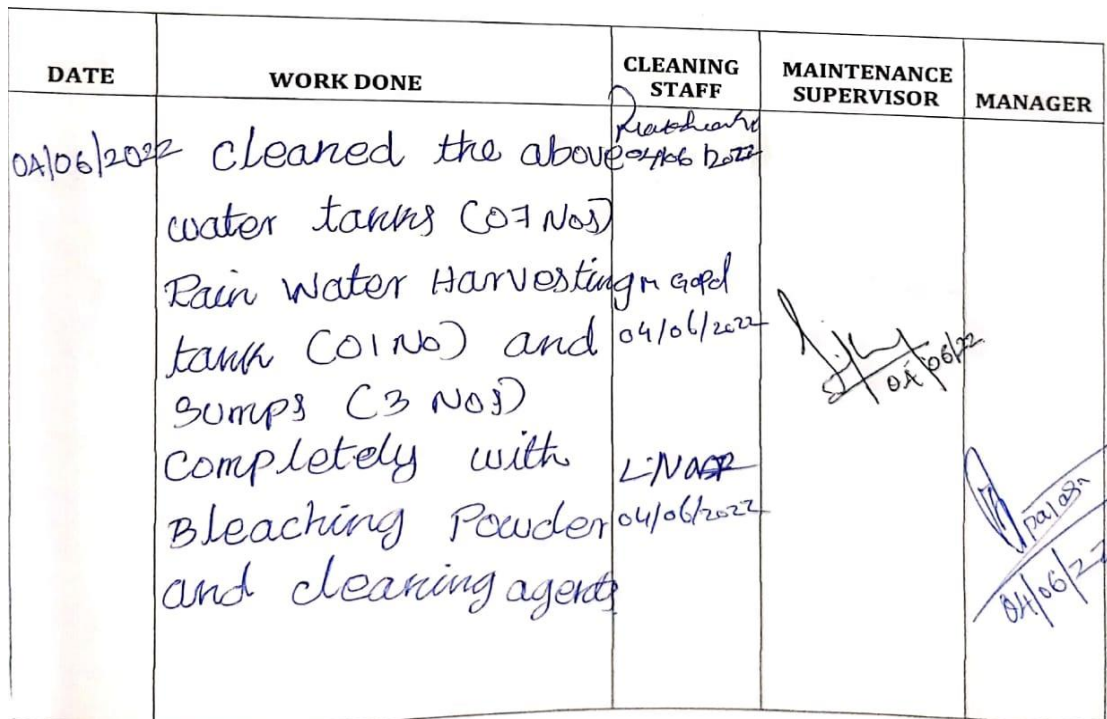 DATE
WORK DONE
CLEANING
STAFF
MAINTENANCE
SUPERVISOR
MANAGER
04/06/2022
cleaned the above
water tanks (07 Nos)
Rain Water Harvesting
tank (01 No) and
Sumps (3 Nos)
completely with
Bleaching Powder
and cleaning agents
04/06/2022
M Gopal
04/06/2022
04/06/2022
04/06/22
04/06/22